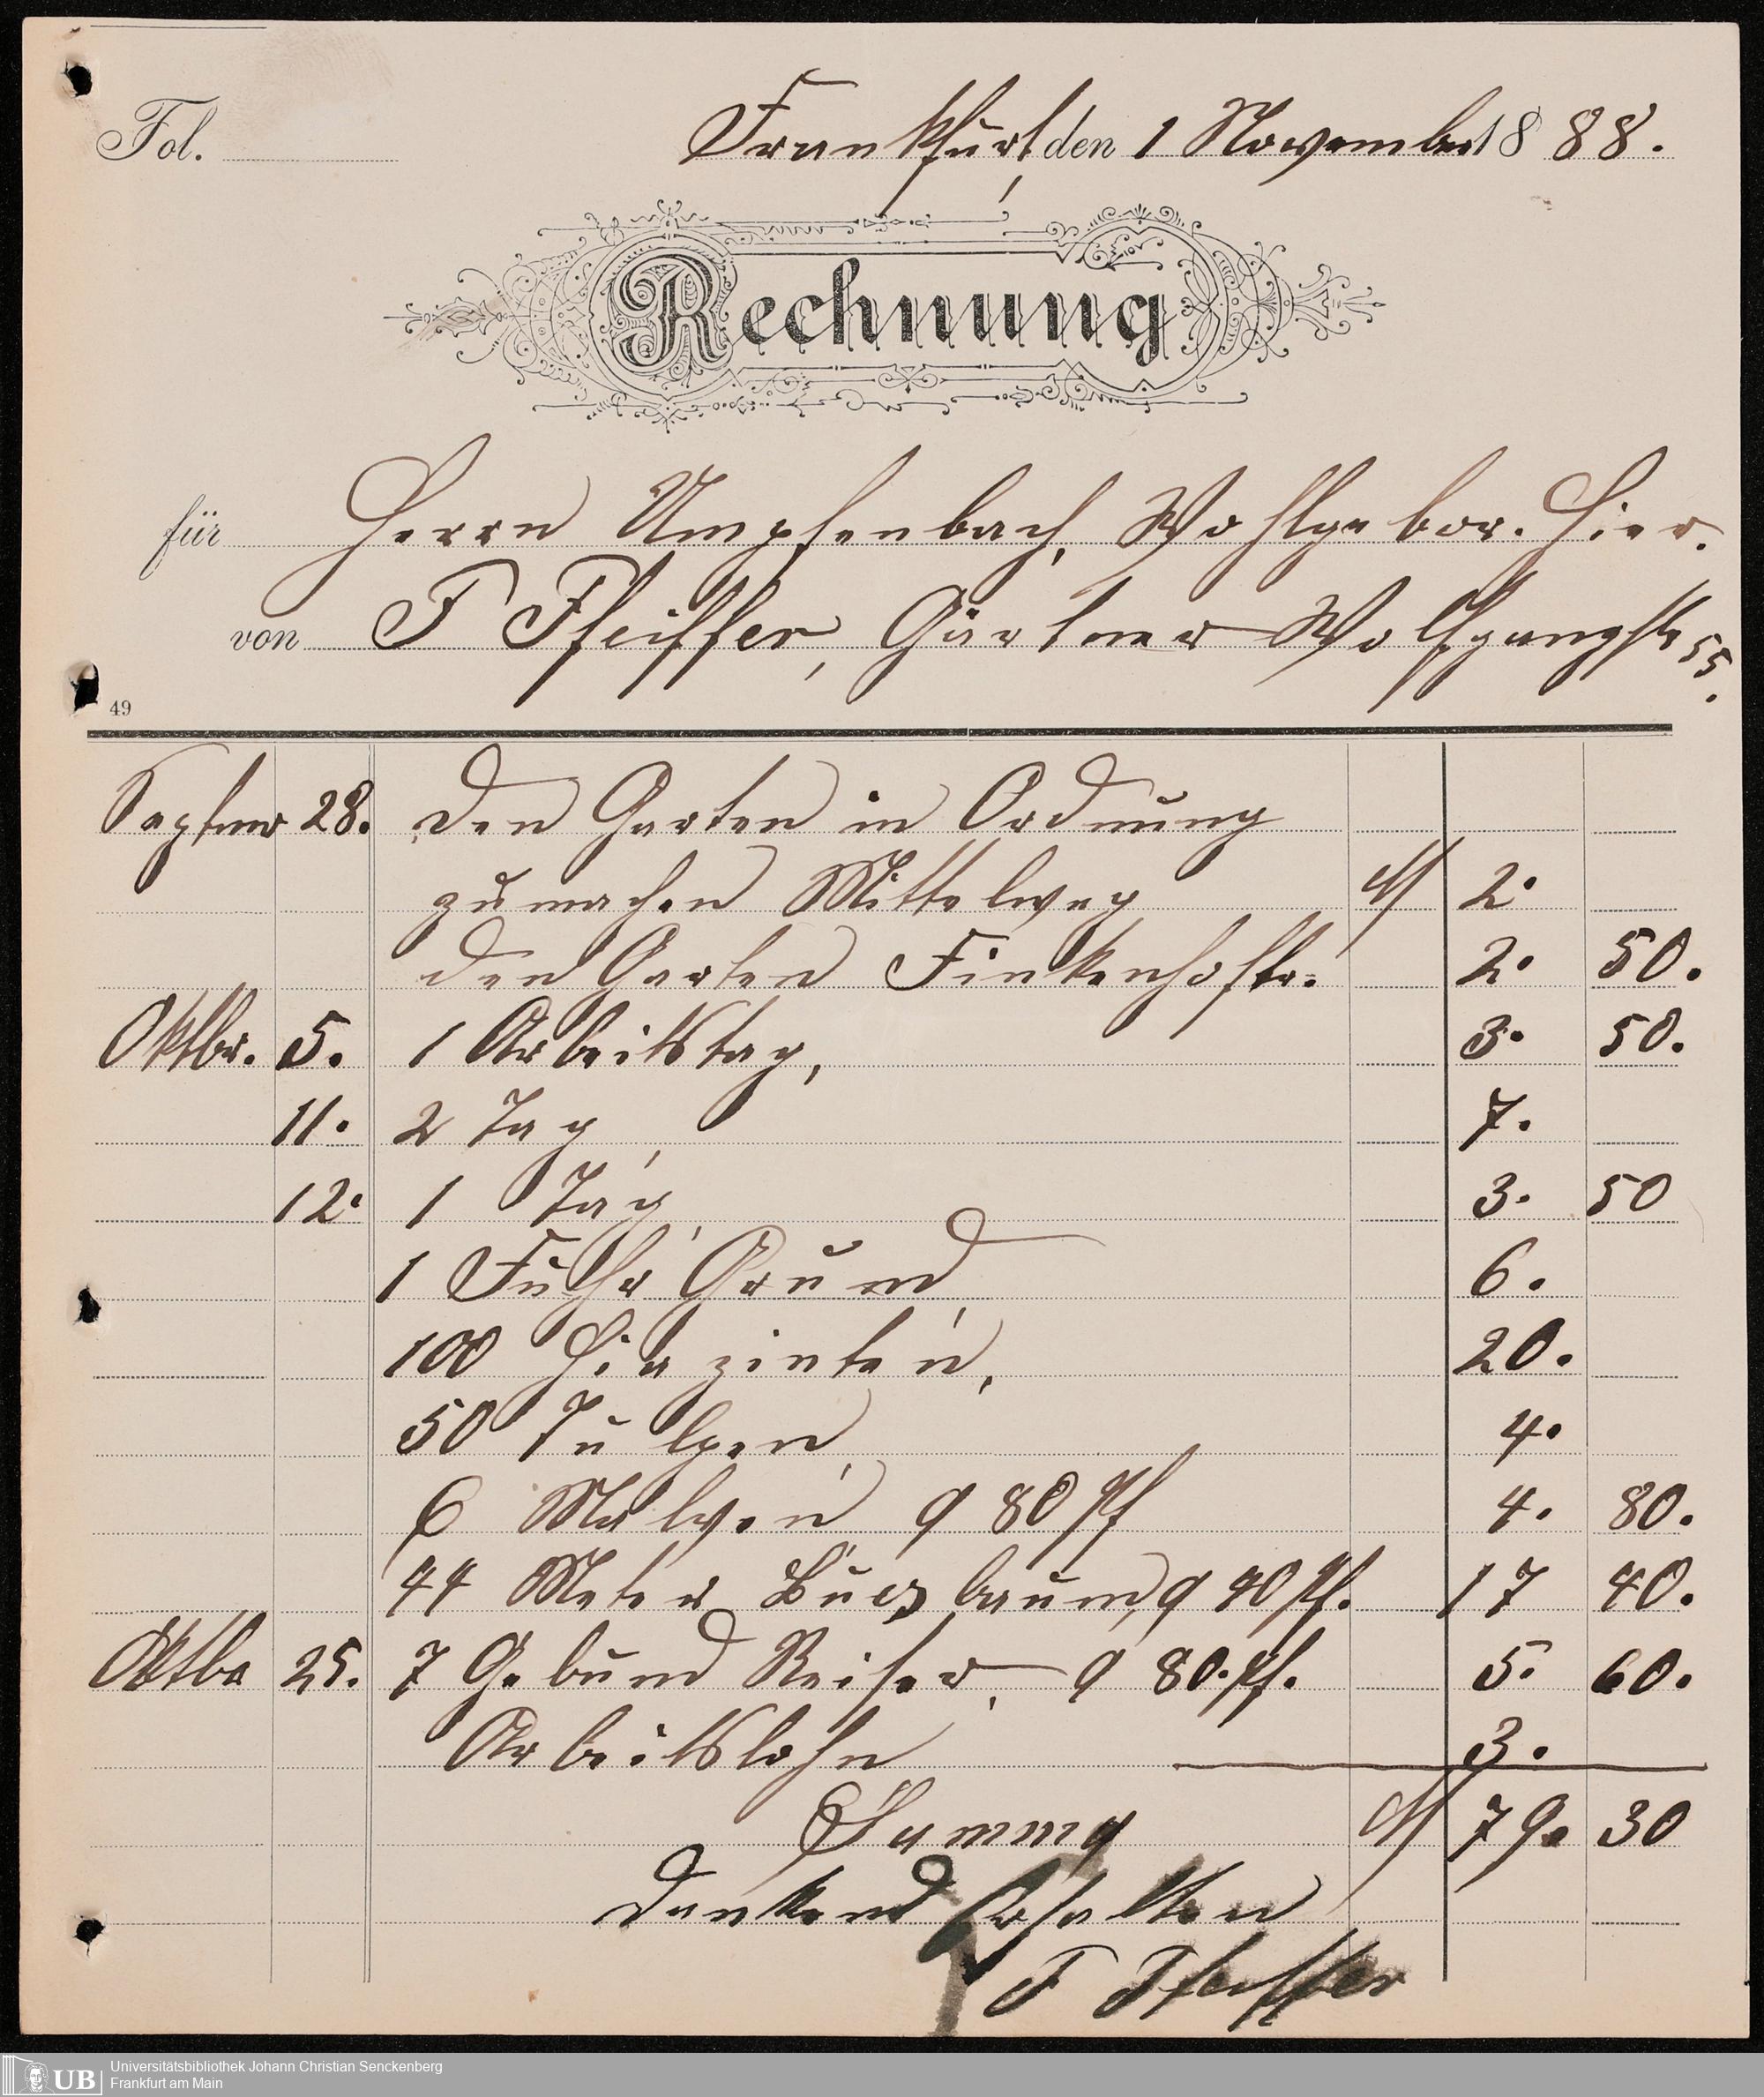 Fol. Frankfurt, den 1 November 1888.
Rechnung
für Herrn Umpfenbach, Wohlgebor. Hier.
von F Pfeiffer, Gärtner Wolfgangstr 55.
49
Septmr 28. Den Garten in Ordnung
zu machen Mittelweg M 2.
den Garten Finkenhofstr. 2. 50.
Oktbr. 5. 1 Arbeitstag, 3. 50.
11. 2 Tag, 7.
12. 1 Tag, 3. 50
1 Fuhr Grund, 6.
100 Hiazinten, 20.
50 Tulpen, 4.
6 Malven a 80 Pf 4. 80.
44 Meter Buxbaum, a 40 Pf. 17 40.
Oktbr 25. 7 Gebund Reiser, a 80. Pf. 5. 60.
Arbeitslohn 3.
Summa M 79. 30
Dankend Erhalten
F Pfeiffer
UB Universitätsbibliothek Johann Christian Senckenberg
Frankfurt am Main